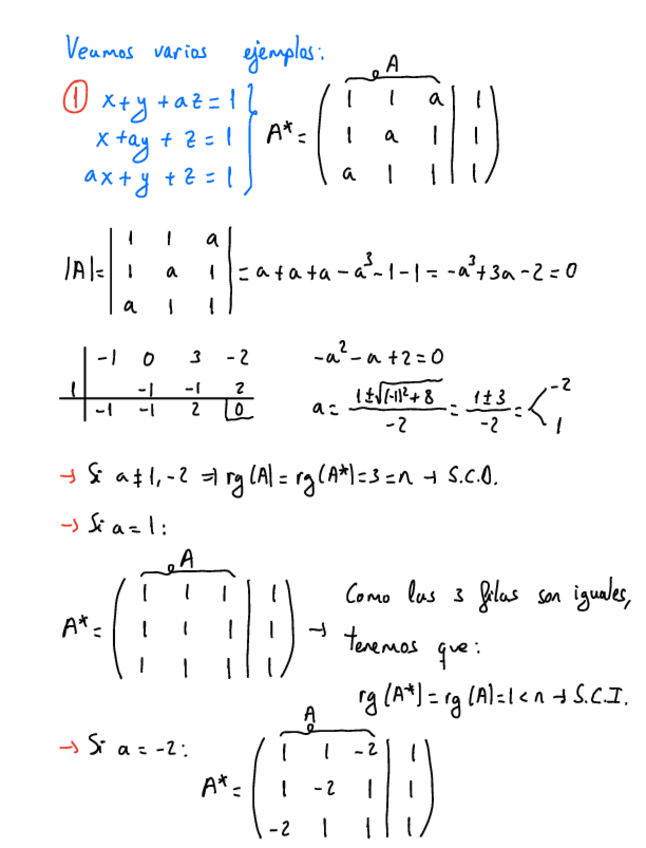 Veamos varios ejemplos:
① x+y+az=1
x+ay+z=1
ax+y+z=1
A
A*= ( 1 1 a | 1
1 a 1 | 1
a 1 1 | 1 )
|A|= | 1 1 a
1 a 1
a 1 1 | = a+a+a-a³-1-1 = -a³+3a-2=0
-1 0 3 -2
1 -1 -1 2
-1 -1 2 0
-a²-a+2=0
a= (1±√((-1)²+8))/-2 = (1±3)/-2 = < -2
1
→ Si a≠1,-2 ⇒ rg(A)=rg(A*)=3=n → S.C.D.
→ Si a=1:
A
A*= ( 1 1 1 | 1
1 1 1 | 1
1 1 1 | 1 )
→ Como las 3 filas son iguales,
tenemos que:
rg(A*)=rg(A)=1<n → S.C.I.
→ Si a=-2:
A
A*= ( 1 1 -2 | 1
1 -2 1 | 1
-2 1 1 | 1 )